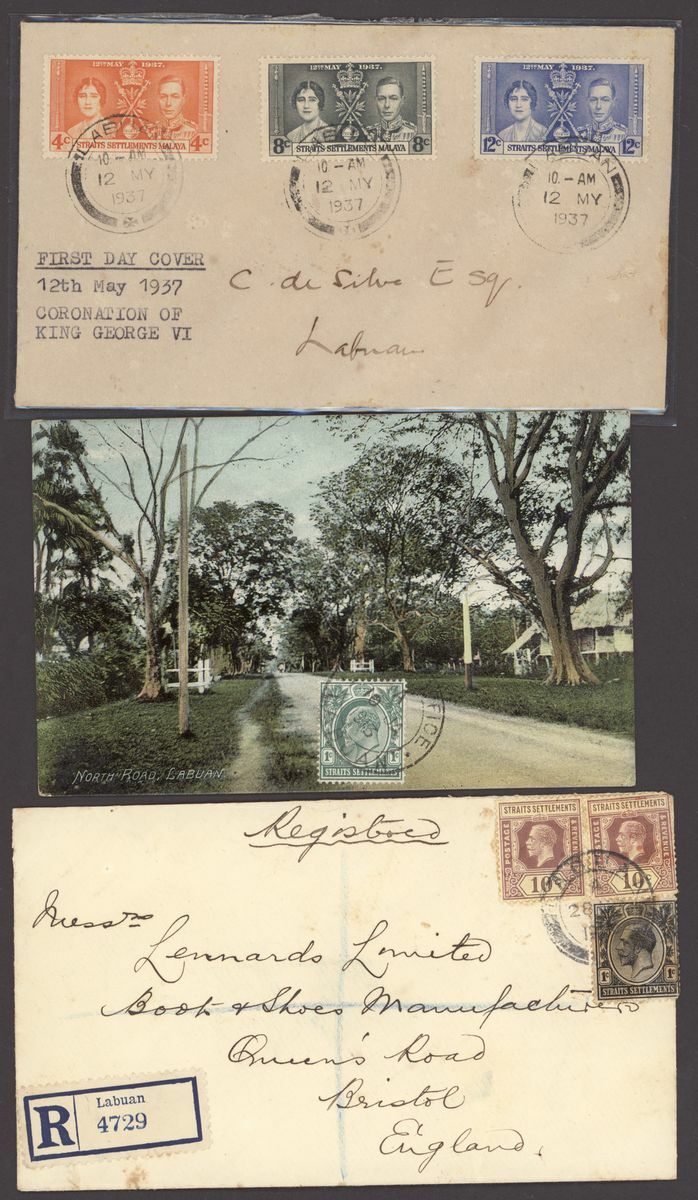 12TH MAY 1937.
4c 4c
STRAITS SETTLEMENTS MALAYA
12TH MAY 1937.
8c 8c
STRAITS SETTLEMENTS MALAYA
12TH MAY 1937.
12c 12c
STRAITS SETTLEMENTS MALAYA
LABUAN
10.-AM
12 MY
1937
LABUAN
10.-AM
12 MY
1937
LABUAN
10.-AM
12 MY
1937
FIRST DAY COVER
12th May 1937
CORONATION OF
KING GEORGE VI
C. de Silva Esq.
Labuan
1c 1c
STRAITS SETTLEMENTS
NORTH ROAD, LABUAN
Registered
STRAITS SETTLEMENTS
POSTAGE & REVENUE
10c
STRAITS SETTLEMENTS
POSTAGE & REVENUE
10c
28
1c 1c
STRAITS SETTLEMENTS
Messrs
Lennards Limited
Boot & Shoes Manufacturers
Queen's Road
Bristol
England.
R
Labuan
4729